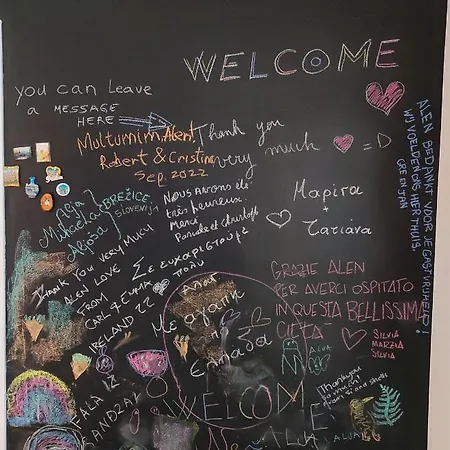 WELCOME
YOU CAN LEAVE
A MESSAGE
HERE
Multumim, Alen!
Robert & Cristina
Sep. 2022
Thank you
very much
= D
Alja
Mihaela
Aljoša
BREŽICE
SLOVENIJA
Nous avons été
très heureux.
Merci
Pascale et Christophe
Μαρίτα
+
Τατιάνα
ALEN BEDANKT VOOR JE GASTVRIJHEID!
WIJ VOELDEN ONS HIER THUIS.
GRE EN JAN
Thank YOU VERY MUCH
ALEN LOVE
FROM
CARL +
IRELAND 22
Σε ευχαριστούμε
πολύ
Με αγάπη
Ελλάδα
GRAZIE ALEN
PER AVERCI OSPITATO
IN QUESTA BELLISSIMA
CITTÀ
SILVIA
MARZIA
SILVIA
ALJA
Thank you
so much!
HVALA IZ
WELCOME
ALJA
ALJA